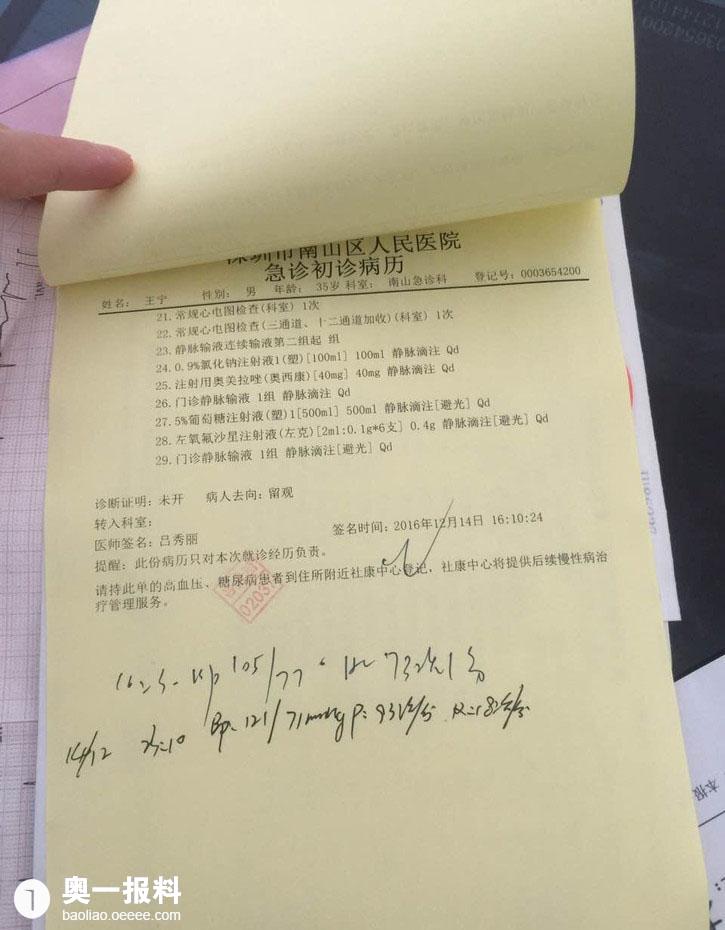 深圳市南山区人民医院
急诊初诊病历
姓名: 王宁 性别: 男 年龄: 35岁 科室: 南山急诊科 登记号: 0003654200
21. 常规心电图检查(科室) 1次
22. 常规心电图检查(三通道、十二通道加收)(科室) 1次
23. 静脉输液连续输液第二组起 组
24. 0.9%氯化钠注射液1(塑)[100ml] 100ml 静脉滴注 Qd
25. 注射用奥美拉唑(奥西康)[40mg] 40mg 静脉滴注 Qd
26. 门诊静脉输液 1组 静脉滴注 Qd
27. 5%葡萄糖注射液(塑)1[500ml] 500ml 静脉滴注[避光] Qd
28. 左氧氟沙星注射液(左克)[2ml:0.1g*6支] 0.4g 静脉滴注[避光] Qd
29. 门诊静脉输液 1组 静脉滴注[避光] Qd
诊断证明: 未开 病人去向: 留观
转入科室:
医师签名: 吕秀丽 签名时间: 2016年12月14日 16:10:24
提醒: 此份病历只对本次就诊经历负责。
请持此单的高血压、糖尿病患者到住所附近社康中心登记, 社康中心将提供后续慢性病治
疗管理服务。
105/77 73次/分
14/12 23:10 Bp: 121/71mmHg P: 93次/分 R: 18次/分
本报
1 奥一报料
baoliao.oeeee.com